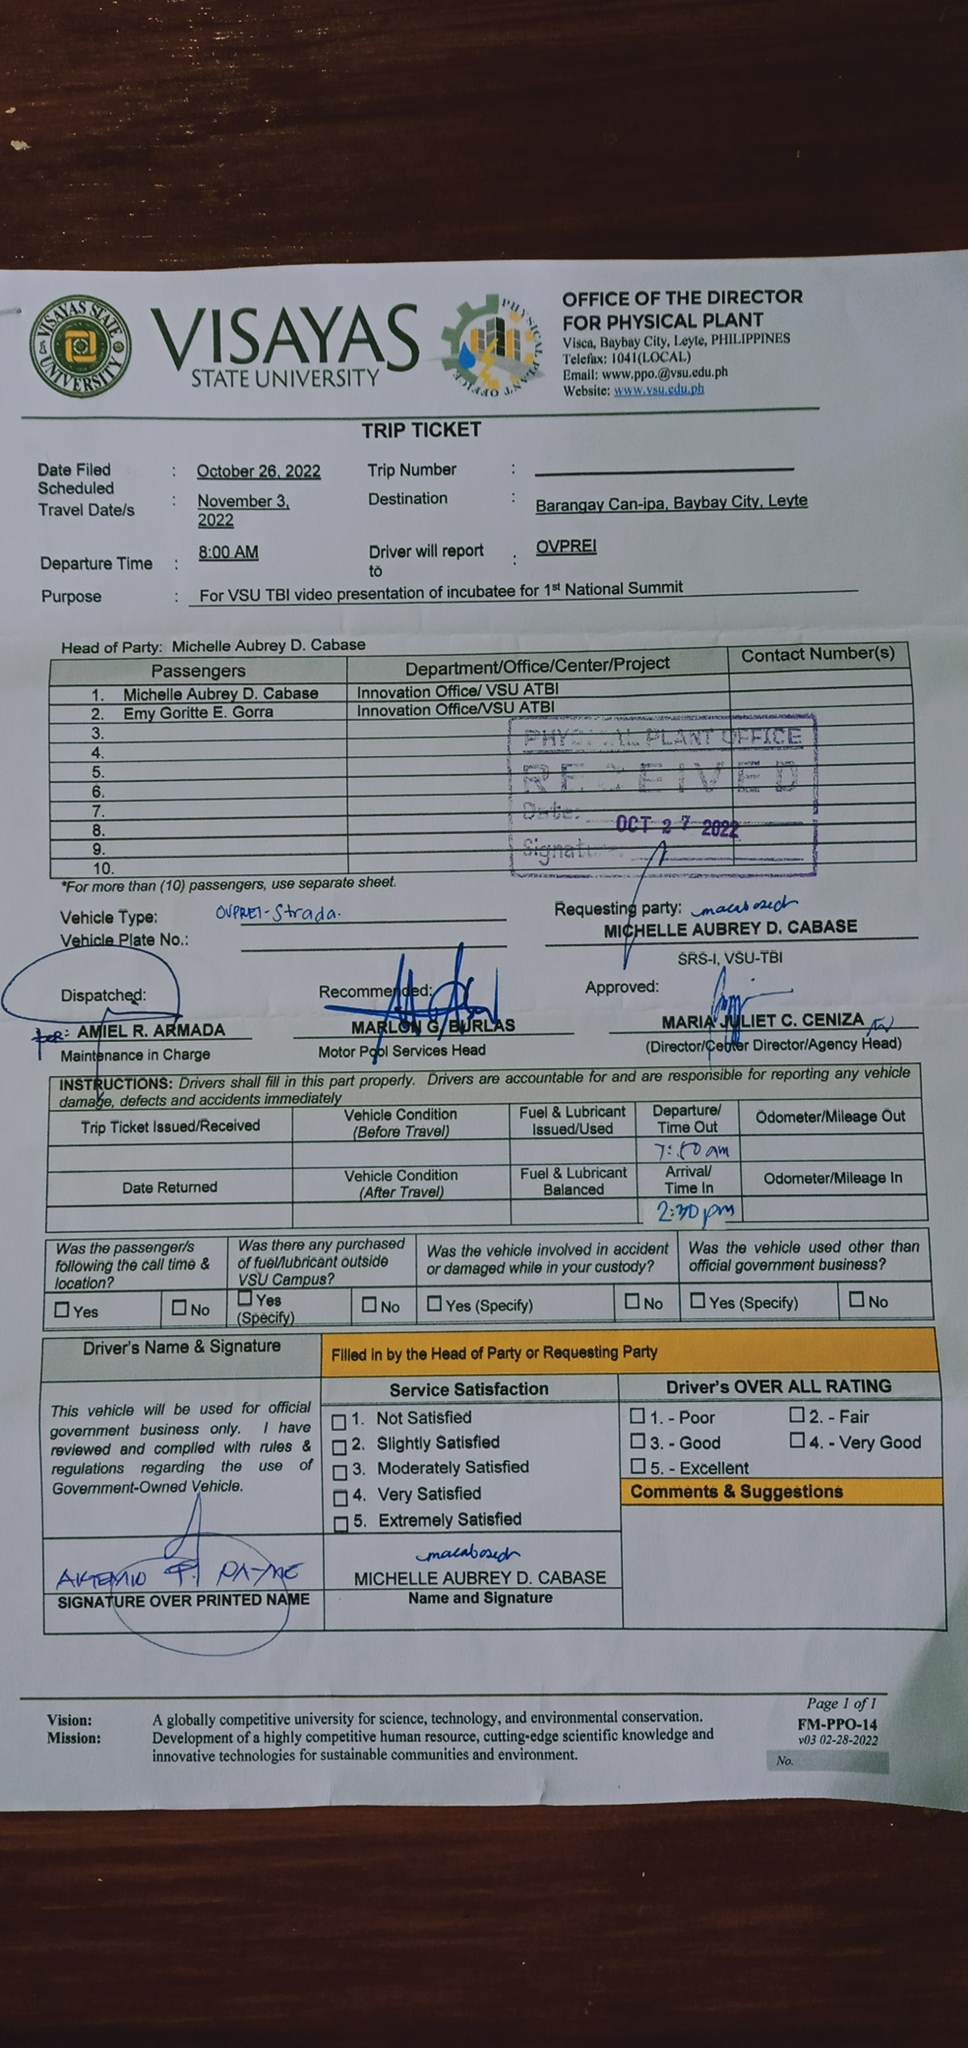 VISAYAS STATE UNIVERSITY
VISAYAS
STATE UNIVERSITY
PHYSICAL PLANT OFFICE
OFFICE OF THE DIRECTOR
FOR PHYSICAL PLANT
Visca, Baybay City, Leyte, PHILIPPINES
Telefax: 1041(LOCAL)
Email: www.ppo.@vsu.edu.ph
Website: www.vsu.edu.ph
TRIP TICKET
Date Filed : October 26, 2022 Trip Number :
Scheduled
Travel Date/s : November 3, 2022 Destination : Barangay Can-ipa, Baybay City, Leyte
Departure Time : 8:00 AM Driver will report to : OVPREI
Purpose : For VSU TBI video presentation of incubatee for 1st National Summit
Head of Party: Michelle Aubrey D. Cabase
Passengers Department/Office/Center/Project Contact Number(s)
1. Michelle Aubrey D. Cabase Innovation Office/ VSU ATBI
2. Emy Goritte E. Gorra Innovation Office/VSU ATBI
3.
4.
5.
6.
7.
8.
9.
10.
PHYSICAL PLANT OFFICE
RECEIVED
Date:
OCT 27 2022
Signat
*For more than (10) passengers, use separate sheet.
Vehicle Type: OVPREI-Strada.
Vehicle Plate No.:
Requesting party:
MICHELLE AUBREY D. CABASE
SRS-I, VSU-TBI
Dispatched: Recommended: Approved:
for: AMIEL R. ARMADA MARLON G. BURLAS MARIA JULIET C. CENIZA
Maintenance in Charge Motor Pool Services Head (Director/Center Director/Agency Head)
INSTRUCTIONS: Drivers shall fill in this part properly. Drivers are accountable for and are responsible for reporting any vehicle
damage, defects and accidents immediately
Trip Ticket Issued/Received Vehicle Condition (Before Travel) Fuel & Lubricant Issued/Used Departure/ Time Out Odometer/Mileage Out
7:50 am
Date Returned Vehicle Condition (After Travel) Fuel & Lubricant Balanced Arrival/ Time In Odometer/Mileage In
2:30 pm
Was the passenger/s following the call time & location? Was there any purchased of fuel/lubricant outside VSU Campus? Was the vehicle involved in accident or damaged while in your custody? Was the vehicle used other than official government business?
Yes No Yes (Specify) No Yes (Specify) No Yes (Specify) No
Driver's Name & Signature
Filled in by the Head of Party or Requesting Party
This vehicle will be used for official
government business only. I have
reviewed and complied with rules &
regulations regarding the use of
Government-Owned Vehicle.
Service Satisfaction
1. Not Satisfied
2. Slightly Satisfied
3. Moderately Satisfied
4. Very Satisfied
5. Extremely Satisfied
Driver's OVER ALL RATING
1. - Poor 2. - Fair
3. - Good 4. - Very Good
5. - Excellent
Comments & Suggestions
SIGNATURE OVER PRINTED NAME
MICHELLE AUBREY D. CABASE
Name and Signature
Vision: A globally competitive university for science, technology, and environmental conservation.
Mission: Development of a highly competitive human resource, cutting-edge scientific knowledge and
innovative technologies for sustainable communities and environment.
Page 1 of 1
FM-PPO-14
v03 02-28-2022
No.